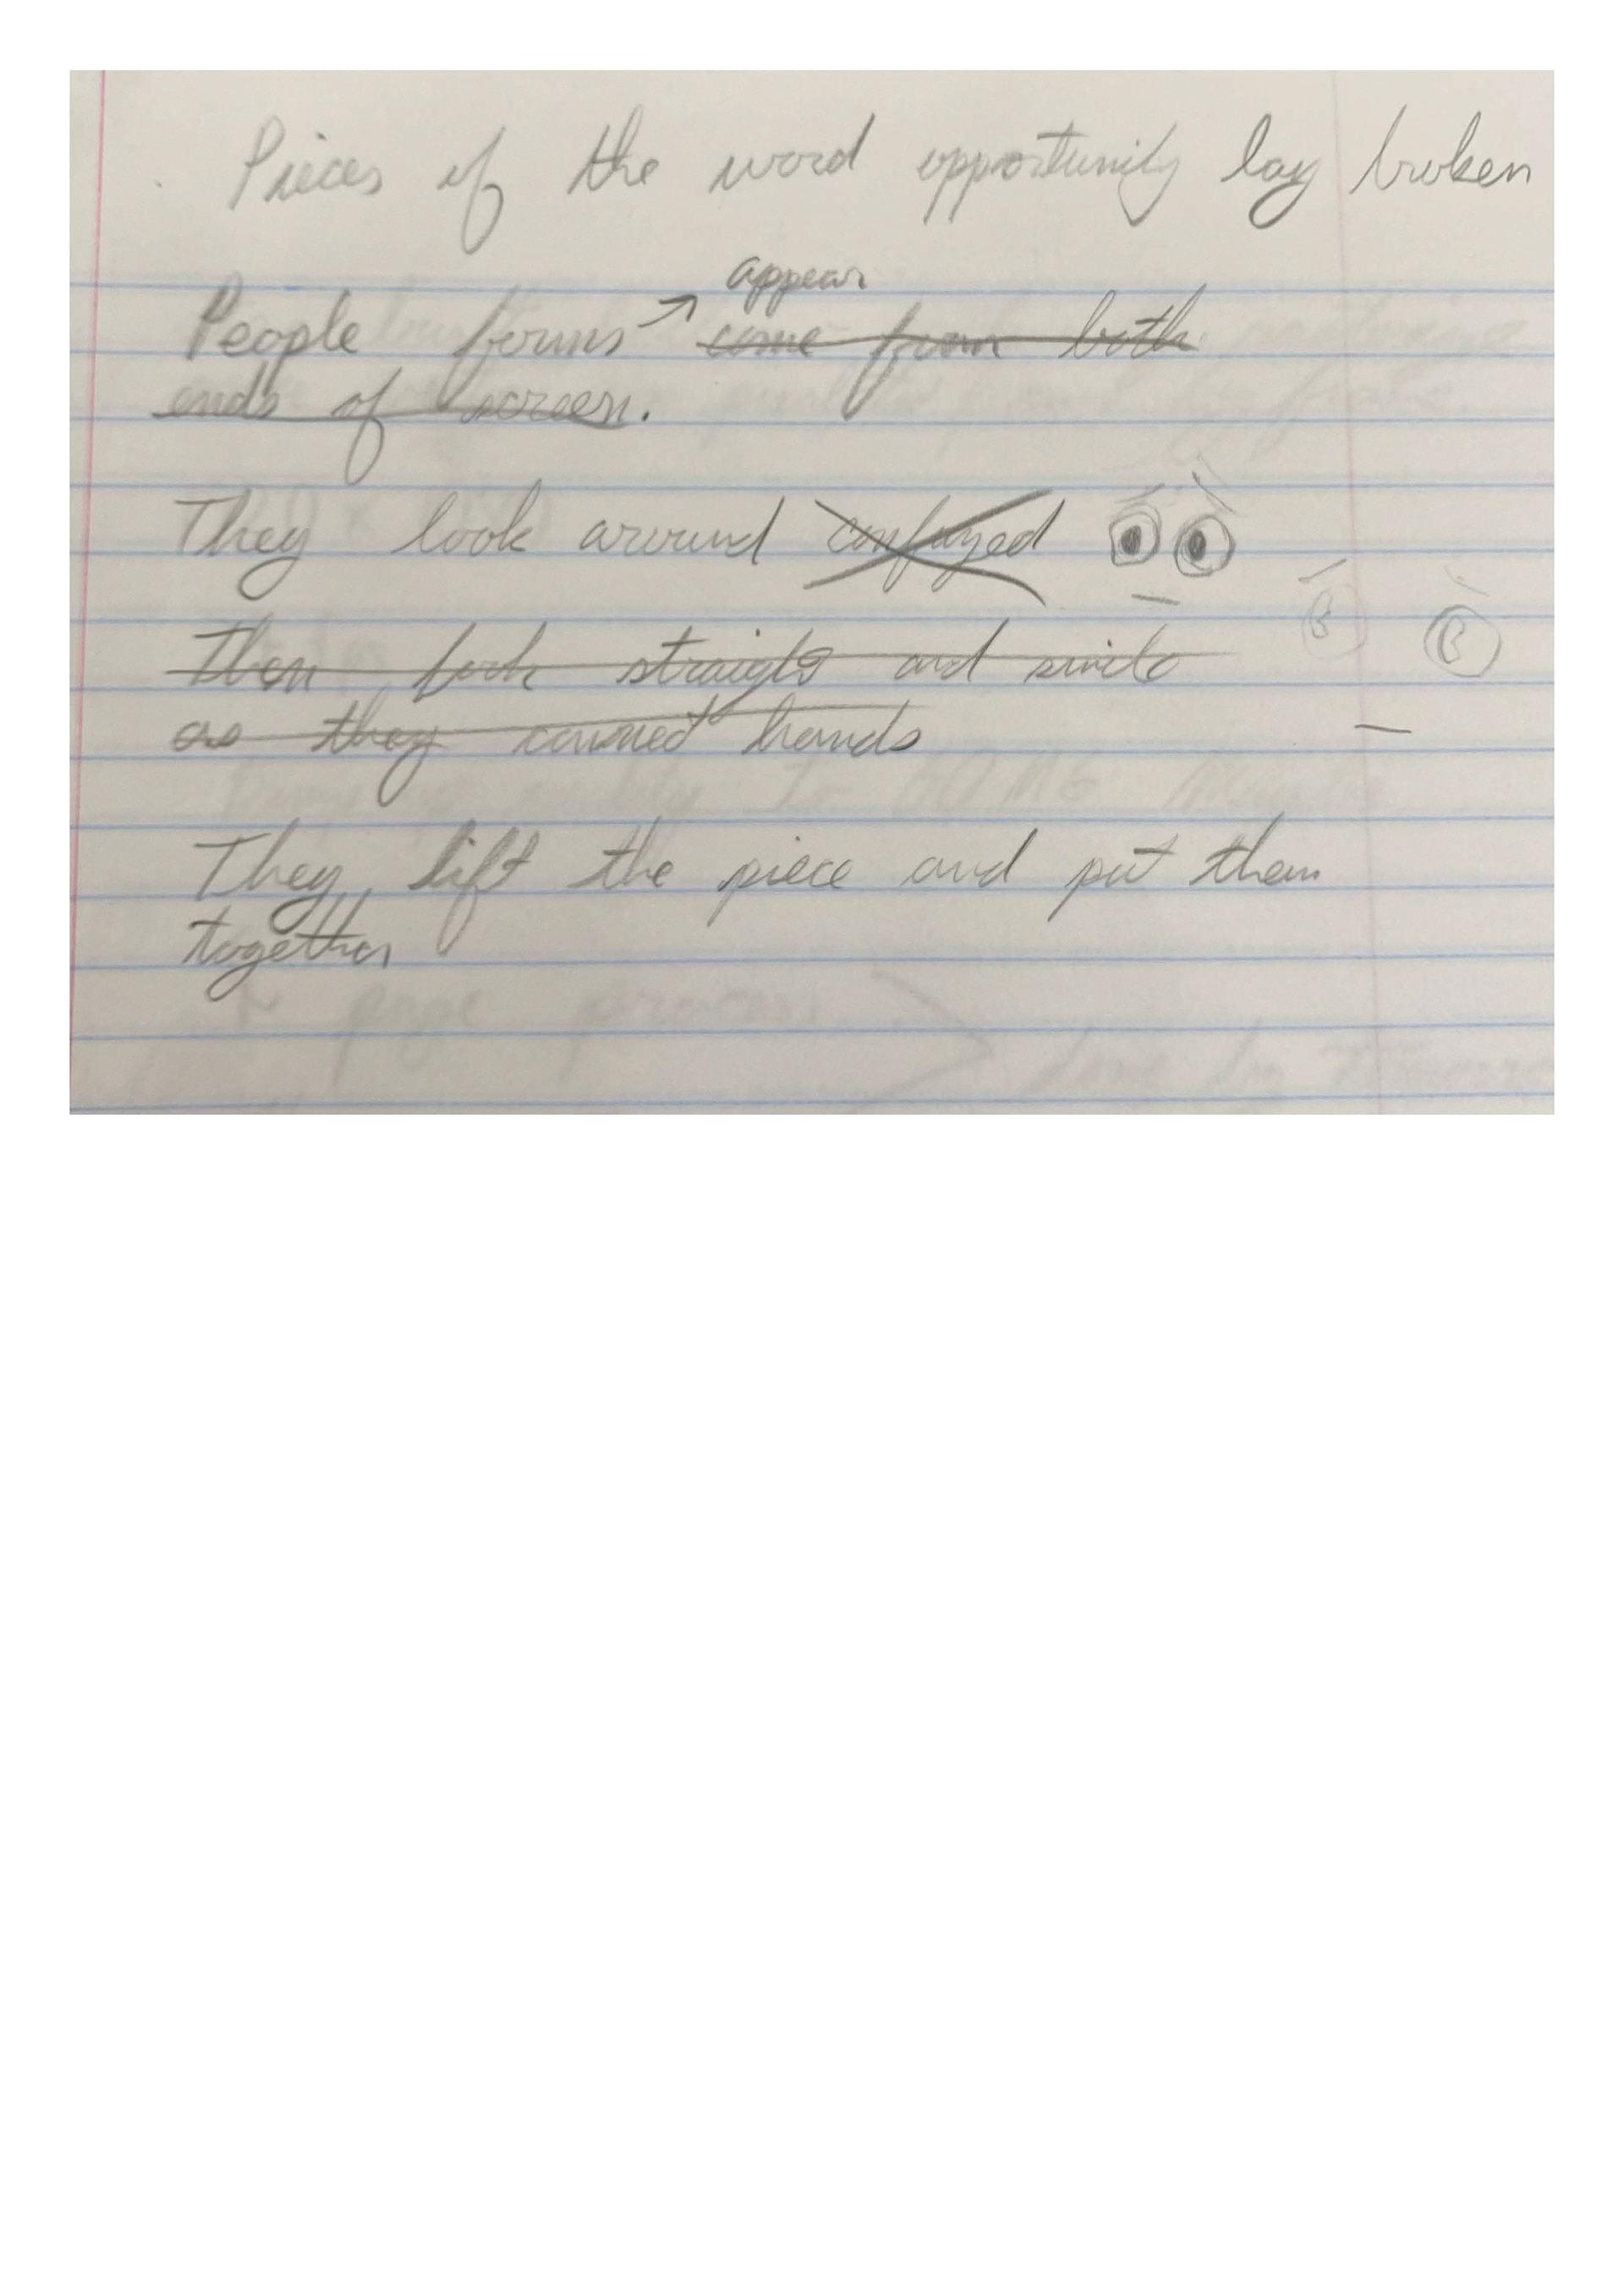 Pieces of the word opportunity lay broken
appear
People forms come from both
ends of screen.
They look around confuzed
Then look straight and smile
as they connect hands
They lift the piece and put them
together